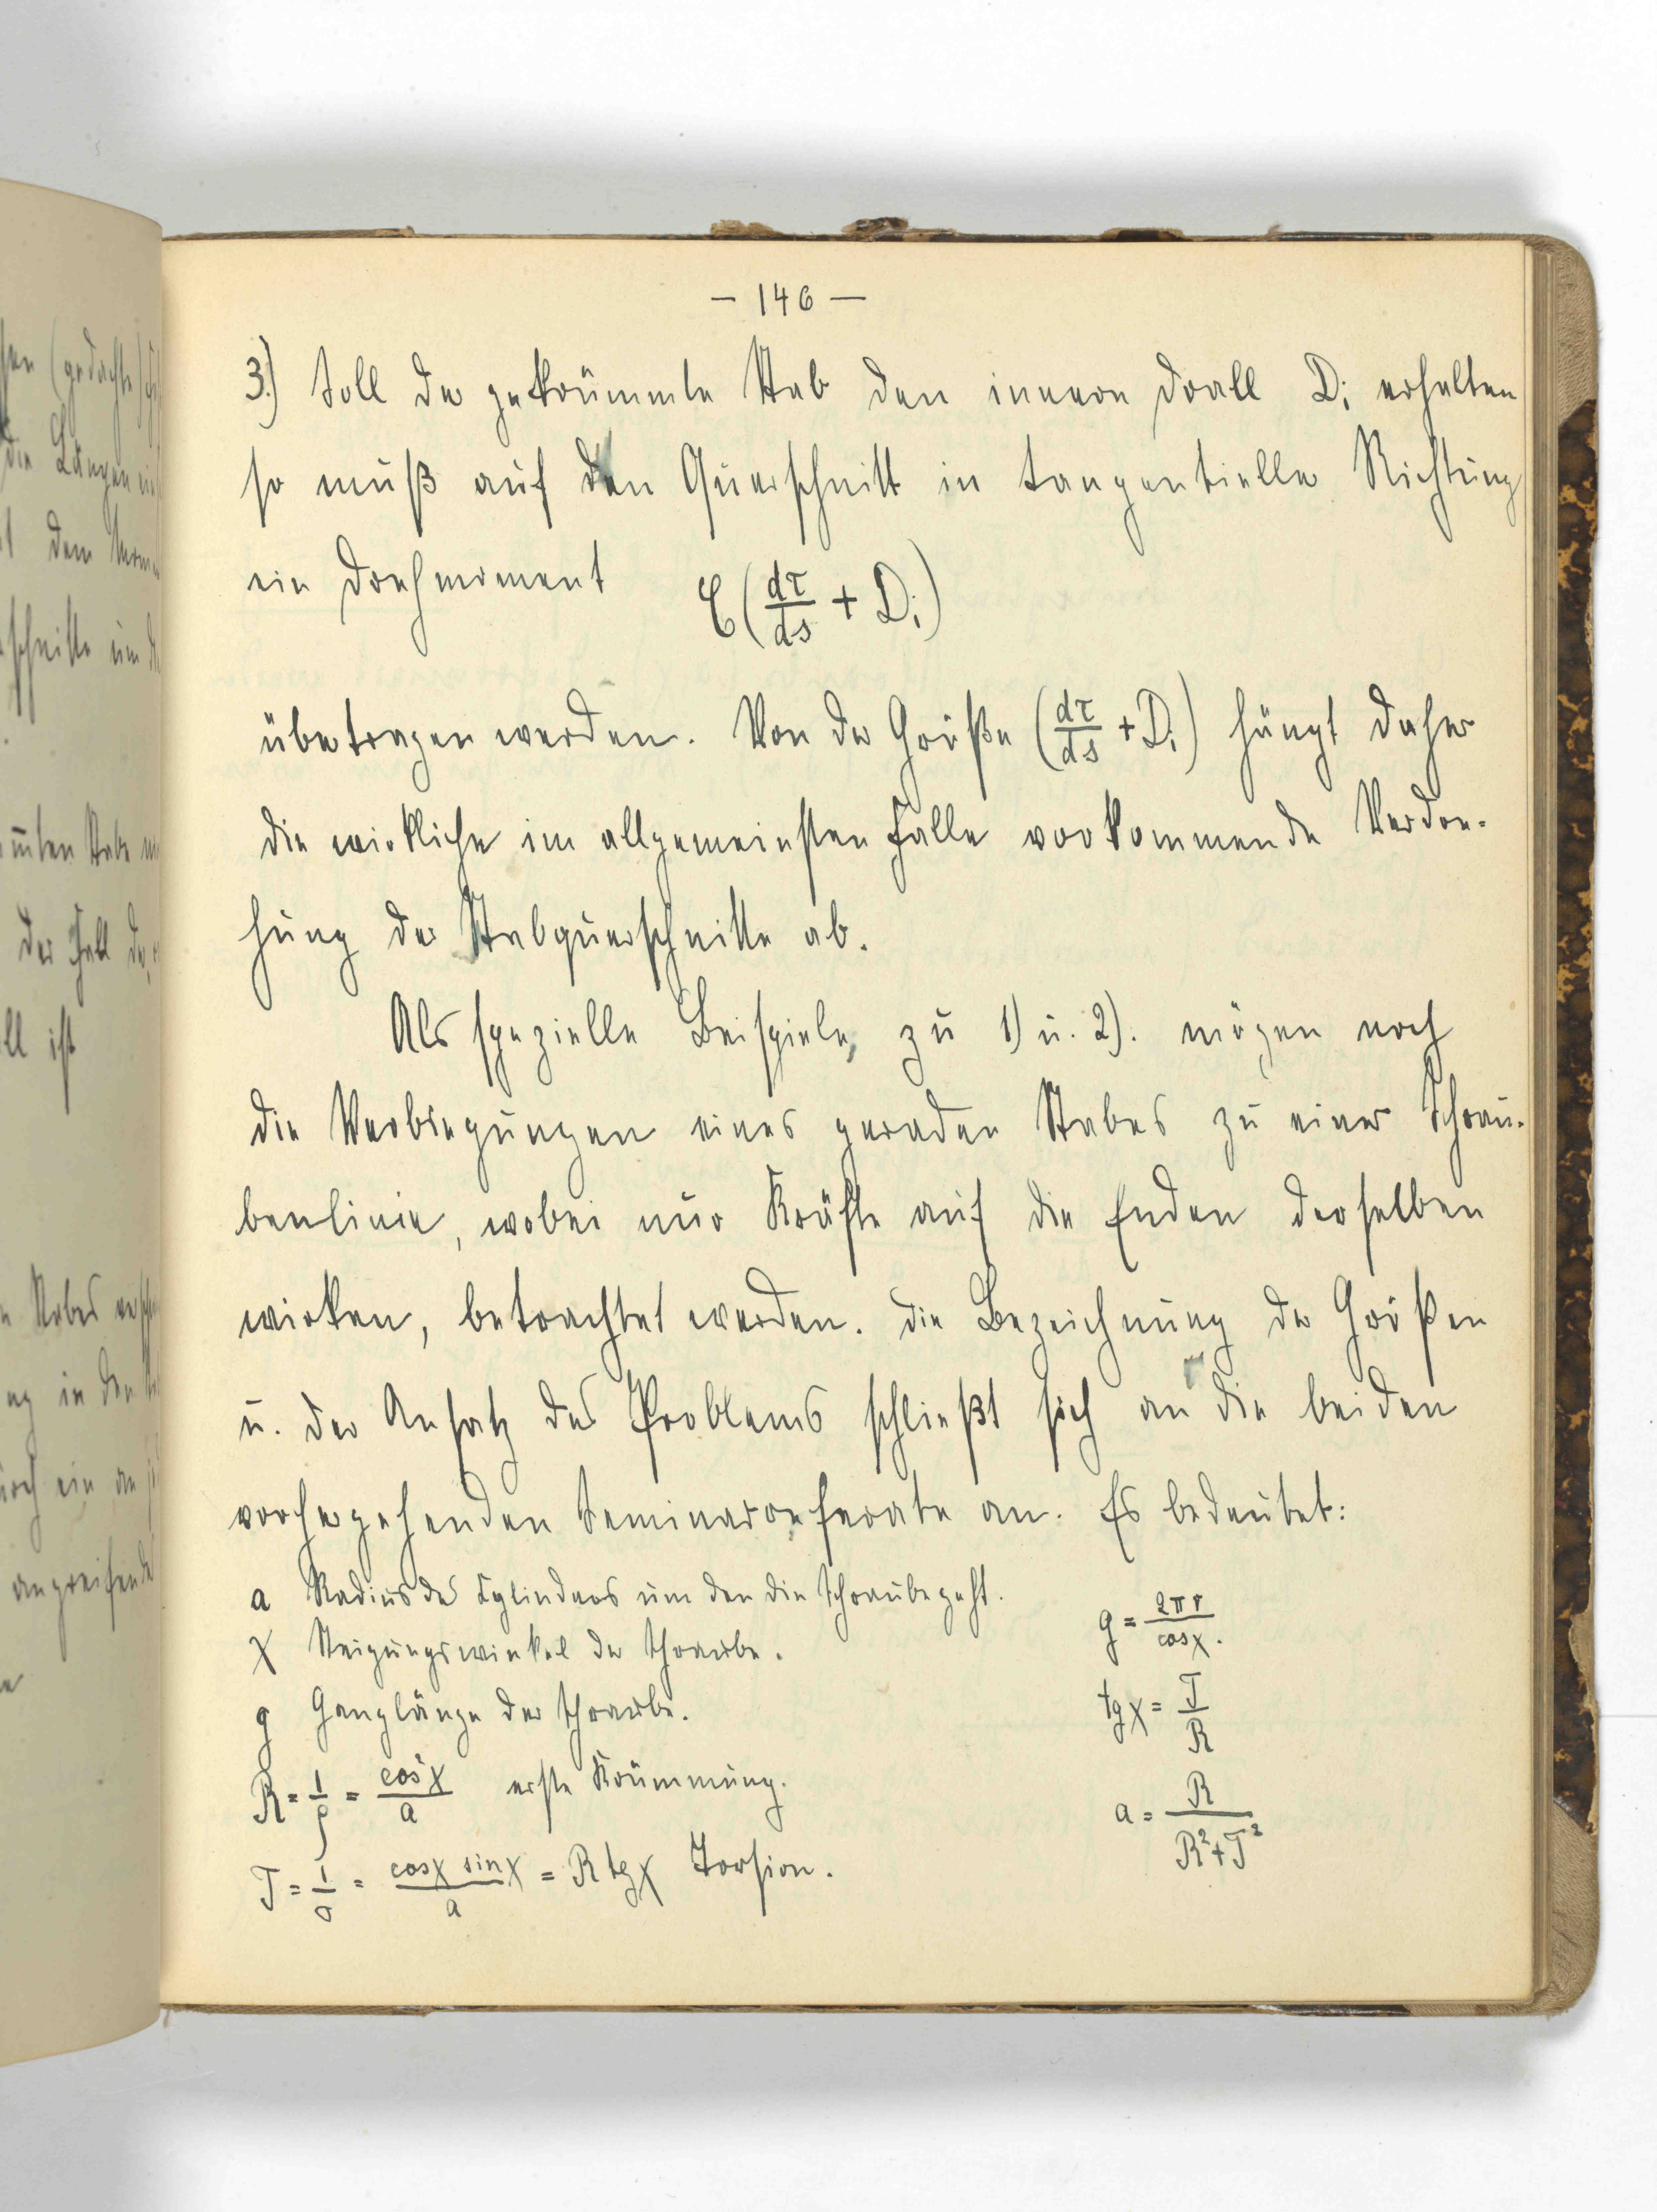 — 146 —
3.) Soll der gekrümmte Stab den innern Drall Di erhalten
so muß auf den Querschnitt in tangentieller Richtung
ein Drehmoment ℭ(dτ/ds + Di)
übertragen werden. Von der Größe (dτ/ds + Di) hängt daher
die wirkliche im allgemeinsten Falle vorkommende Verdre-
hung der Stabquerschnitte ab.
Als spezielle Beispiele, zu 1) u. 2). mögen noch
die Verbiegungen eines geraden Stabes zu einer Schrau-
benlinie, wobei nur Kräfte auf die Enden derselben
wirken, betrachtet werden. Die Bezeichnung der Größen
u. der Ansatz des Problems schließt sich an die beiden
vorhergehenden Seminarreferate an. Es bedeutet:
a Radius des Cylinders um den die Schraube geht.
g = 2πr/cosχ.
χ Steigungswinkel der Schraube.
g Ganglänge der Schraube.
tgχ = T/R
R = 1/ρ = cos²χ/a erste Krümmung.
a = R/(R²+T²)
T = 1/σ = cosχ sinχ/a = R tgχ Torsion.